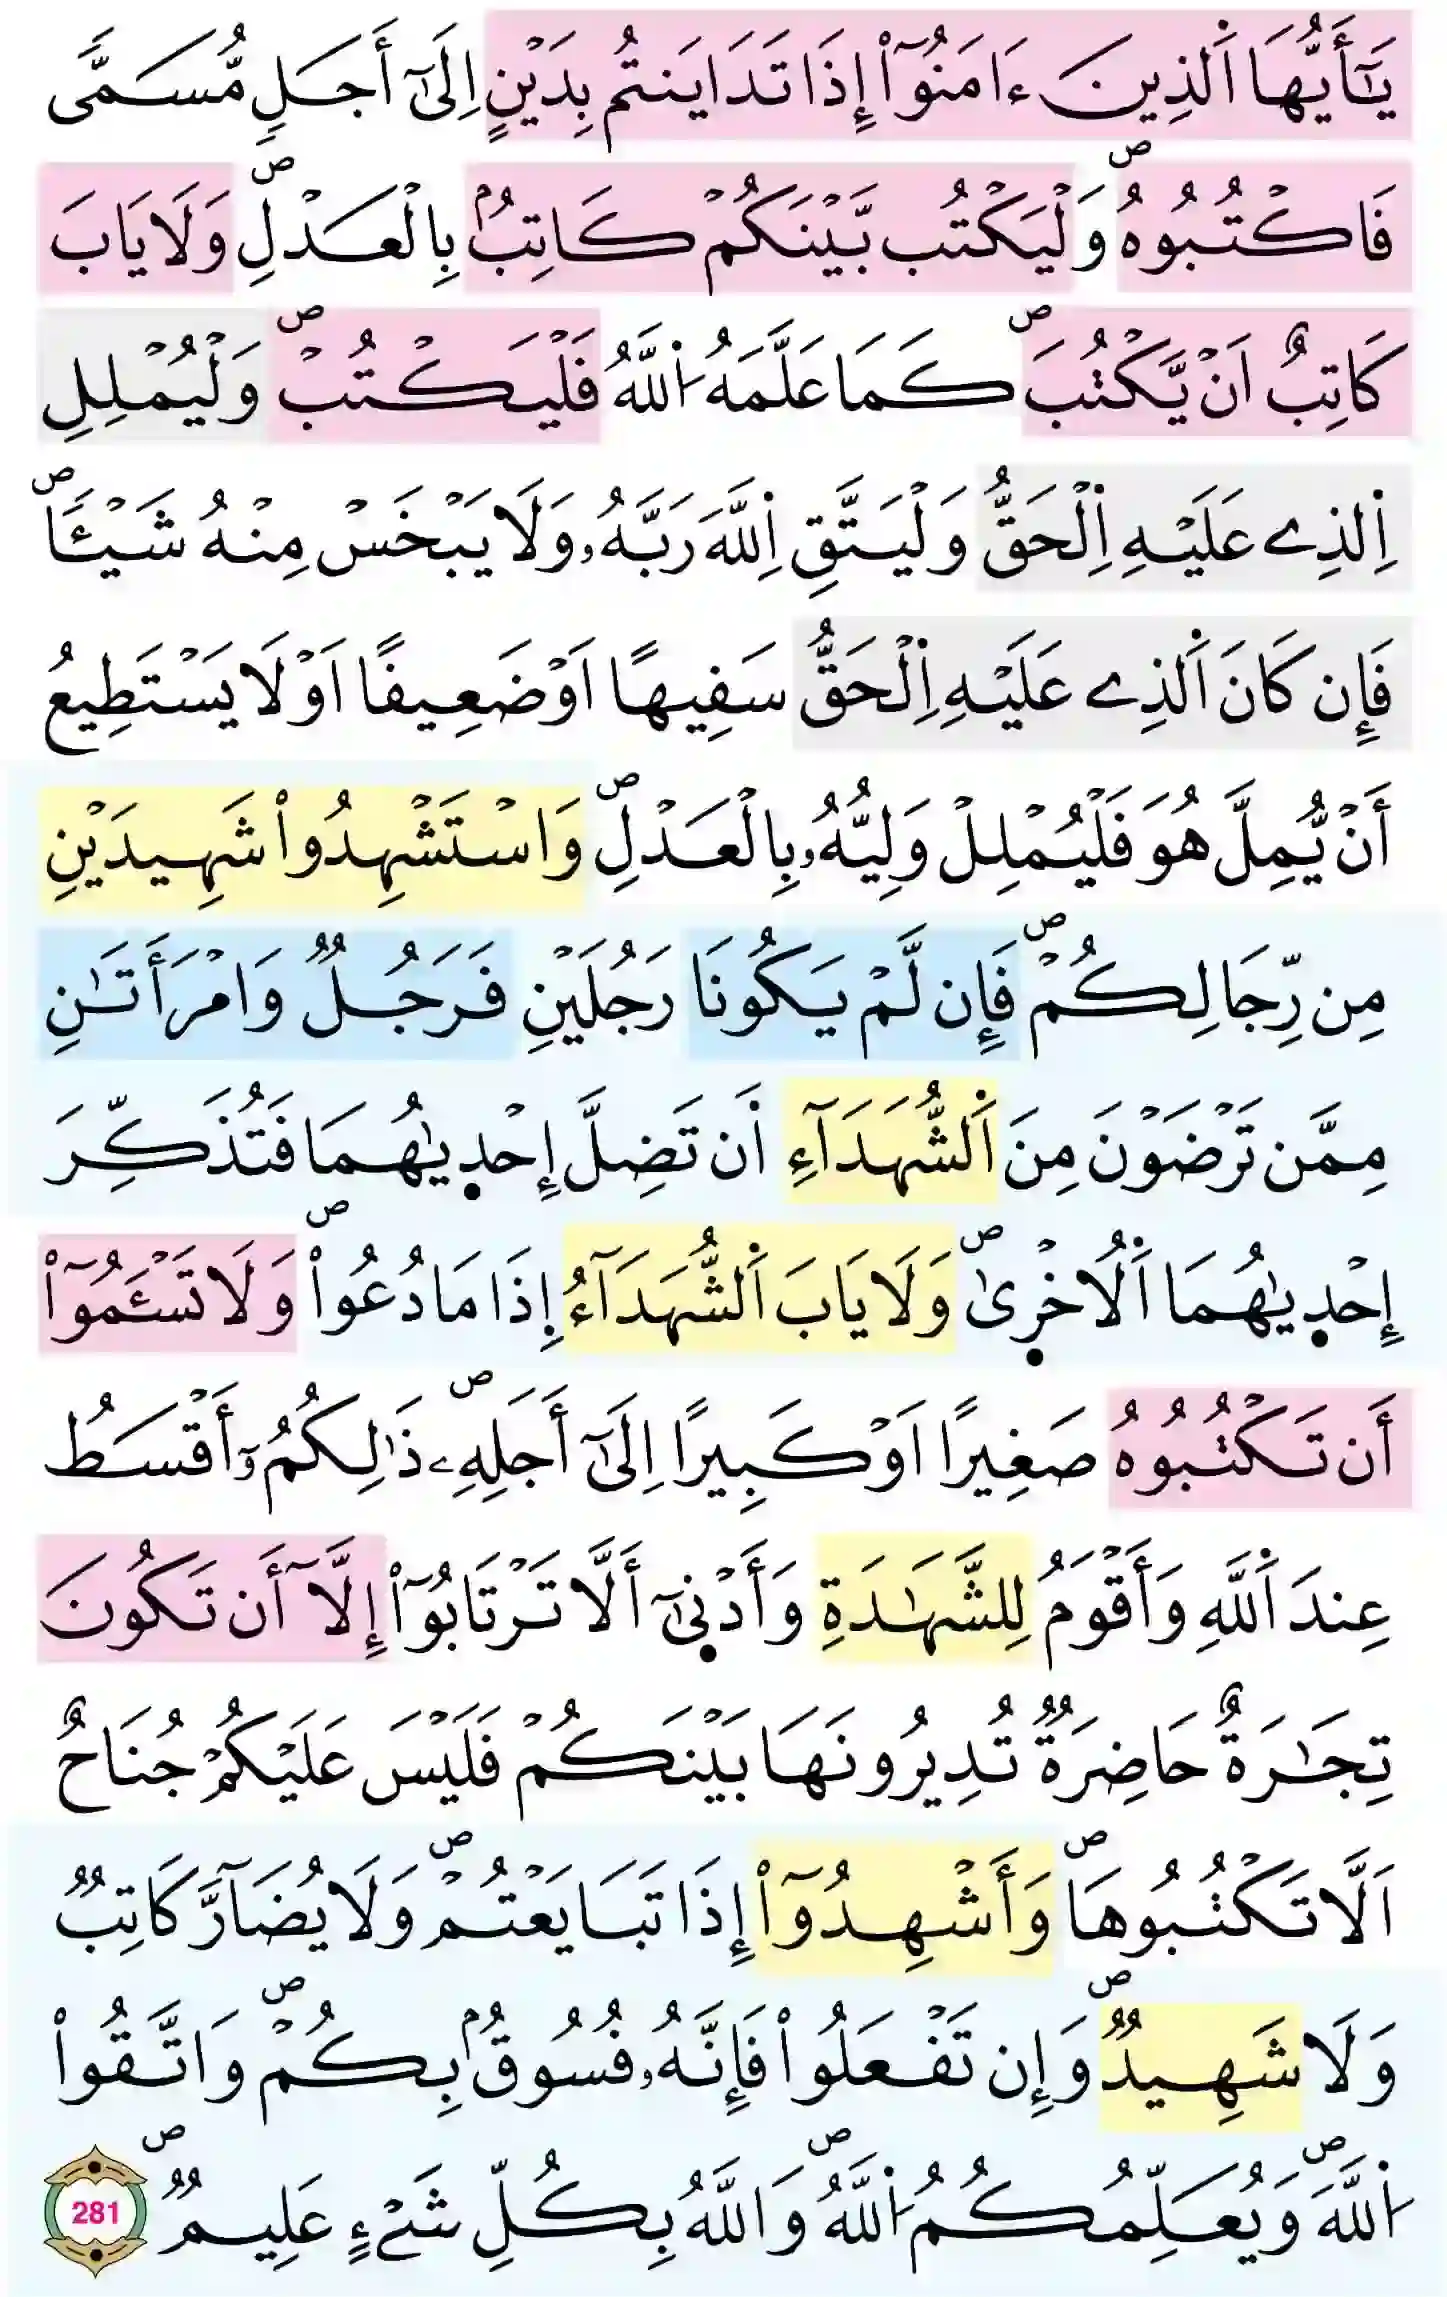 يَٰٓأَيُّهَا اَ۬لذِينَ ءَامَنُوٓاْ إِذَا تَدَايَنتُم بِدَيْنٍ اِلَيٰٓ أَجَلٖ مُّسَمّٗى
فَاكْتُبُوهُۖ وَلْيَكْتُب بَّيْنَكُمْ كَاتِبُۢ بِالْعَدْلِۖ وَلَا يَابَ
كَاتِبٌ اَنْ يَّكْتُبَۖ كَمَا عَلَّمَهُ اُ۬للَّهُ فَلْيَكْتُبْۖ وَلْيُمْلِلِ
اِ۬لذِے عَلَيْهِ اِ۬لْحَقُّ وَلْيَتَّقِ اِ۬للَّهَ رَبَّهُۥ وَلَا يَبْخَسْ مِنْهُ شَيْـٔٗاۖ
فَإِن كَانَ اَ۬لذِے عَلَيْهِ اِ۬لْحَقُّ سَفِيهًا اَوْ ضَعِيفًا اَوْ لَا يَسْتَطِيعُ
أَنْ يُّمِلَّ هُوَ فَلْيُمْلِلْ وَلِيُّهُۥ بِالْعَدْلِۖ وَاسْتَشْهِدُواْ شَهِيدَيْنِ
مِن رِّجَالِكُمْۖ فَإِن لَّمْ يَكُونَا رَجُلَيْنِ فَرَجُلٞ وَامْرَأَتَٰنِ
مِمَّن تَرْضَوْنَ مِنَ اَ۬لشُّهَدَآءِ اَ۬ن تَضِلَّ إِحْد۪يٰهُمَا فَتُذَكِّرَ
إِحْد۪يٰهُمَا اَ۬لُاخْر۪ىٰۖ وَلَا يَابَ اَ۬لشُّهَدَآءُ اِ۪ذَا مَا دُعُواْۖ وَلَا تَسْـَٔمُوٓاْ
أَن تَكْتُبُوهُ صَغِيرًا اَوْ كَبِيرًا اِلَيٰٓ أَجَلِهِۦۖ ذَٰلِكُمُۥٓ أَقْسَطُ
عِندَ اَ۬للَّهِ وَأَقْوَمُ لِلشَّهَٰدَةِ وَأَدْن۪يٰٓ أَلَّا تَرْتَابُوٓاْ إِلَّآ أَن تَكُونَ
تِجَٰرَةٌ حَاضِرَةٞ تُدِيرُونَهَا بَيْنَكُمْ فَلَيْسَ عَلَيْكُمْ جُنَاحٌ
اَلَّا تَكْتُبُوهَاۖ وَأَشْهِدُوٓاْ إِذَا تَبَايَعْتُمْۖ وَلَا يُضَآرَّ كَاتِبٞ
وَلَا شَهِيدٞۖ وَإِن تَفْعَلُواْ فَإِنَّهُۥ فُسُوقُۢ بِكُمْۖ وَاتَّقُواْ
اُ۬للَّهَۖ وَيُعَلِّمُكُمُ اُ۬للَّهُۖ وَاللَّهُ بِكُلِّ شَےْءٍ عَلِيمٞۖ 281